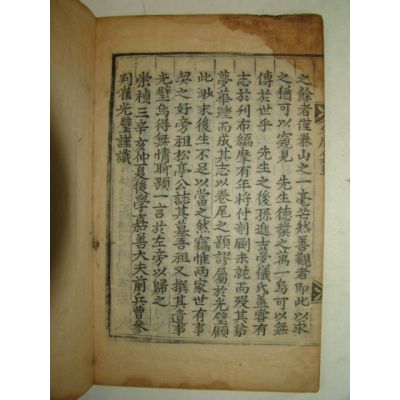 之餘者僅泰山之一毫芒然善觀者即此以求
之猶可以窺見 先生德業之萬一烏可以無
傳於世乎 先生之後孫進士夢儀氏盖甞有
志於刊布編摩有年將付剞劂未就而歿其弟
夢華踵而成其志以卷尾之題謬屬於光璧顧
此淑末後生不足以當之然竊惟兩家世有事
契之好旁祖松亭公誌其墓吾祖又撰其遺事
光璧烏得無情聊題一言於左旁以歸之
崇禎三辛亥仲夏後學嘉善大夫前兵曹叅
判崔光璧謹識